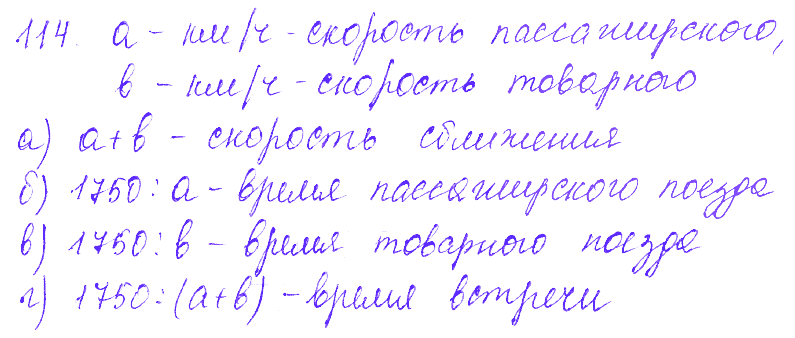 114. a - км/ч - скорость пассажирского,
в - км/ч - скорость товарного
а) a+в - скорость сближения
б) 1750:a - время пассажирского поезда
в) 1750:в - время товарного поезда
г) 1750:(a+в) - время встречи